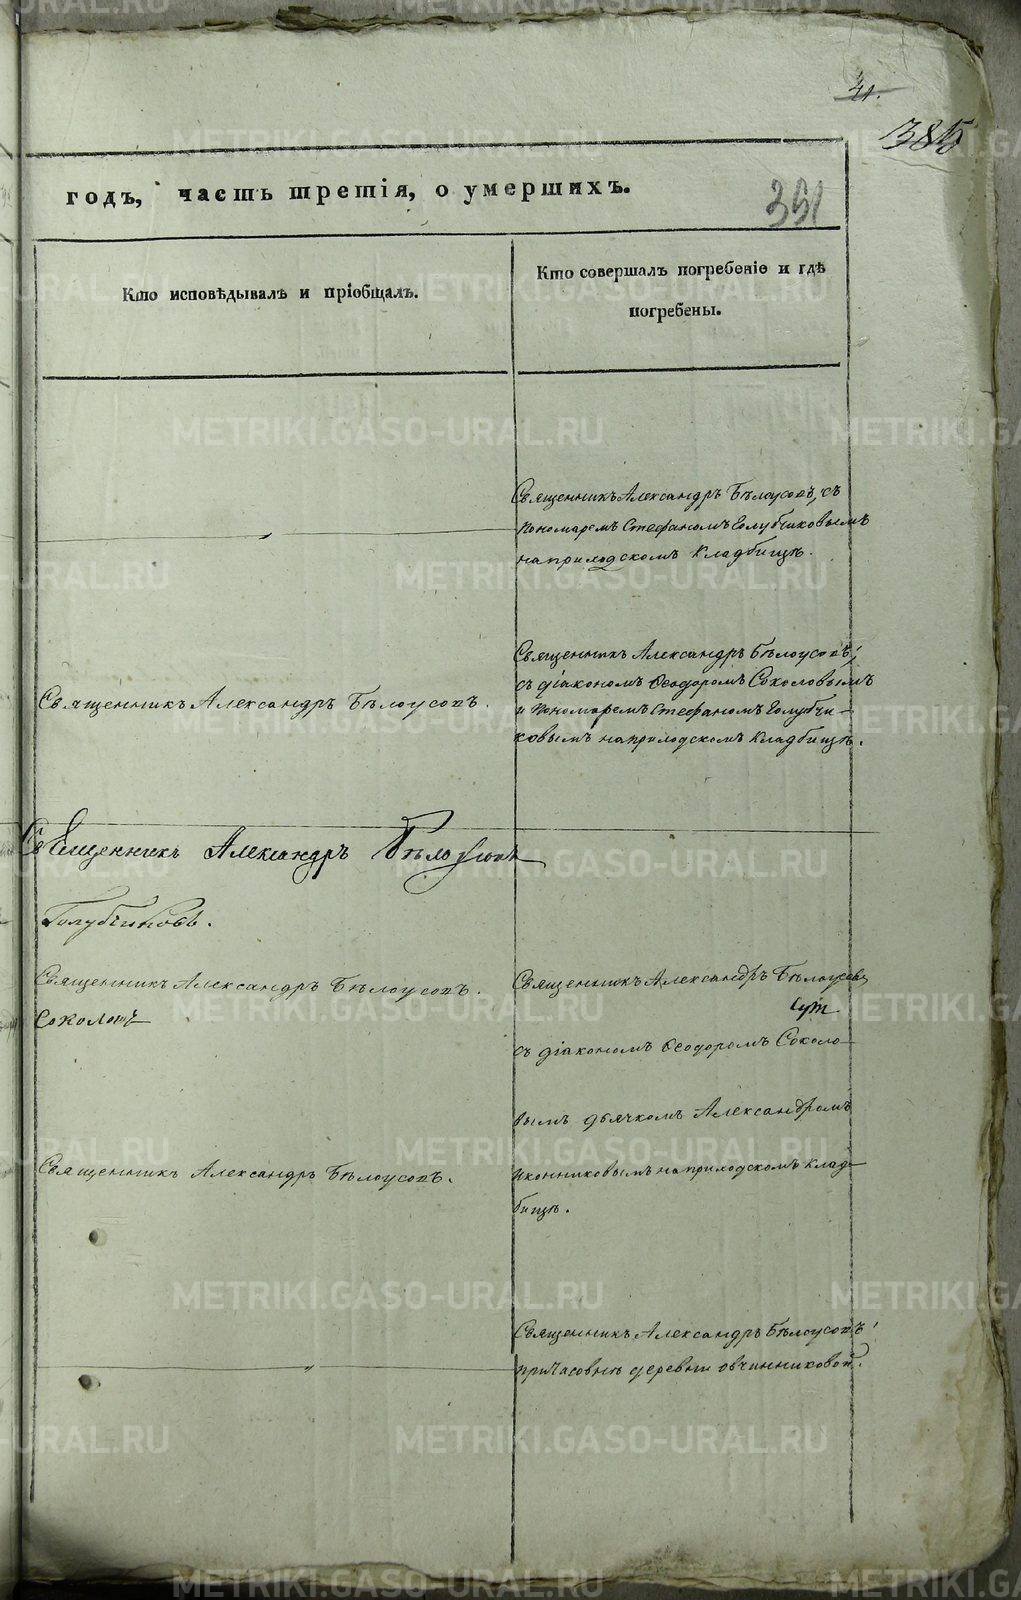 41.
385
годъ, часть третія, о умершихъ.
351
Кто исповѣдывалъ и пріобщалъ.
Кто совершалъ погребеніе и гдѣ
погребены.
Священникъ Александръ Бѣлоусовъ, съ
Пономаремъ Стефаномъ Голубчиковымъ
на приходскомъ Кладбищѣ.
Священникъ Александръ Бѣлоусовъ.
Священникъ Александръ Бѣлоусовъ,
съ діакономъ Ѳеодоромъ Соколовымъ
и Пономаремъ Стефаномъ Голубчи-
ковымъ на приходскомъ Кладбищѣ.
Священникъ Александръ Бѣлоусовъ
Голубчиковъ.
Священникъ Александръ Бѣлоусовъ.
Соколовъ
Священникъ Александръ Бѣлоусовъ
съ діакономъ Ѳеодоромъ Соколо-
вымъ дьячкомъ Александромъ
Иконниковымъ на приходскомъ Клад-
бищѣ.
Священникъ Александръ Бѣлоусовъ.
Священникъ Александръ Бѣлоусовъ
при Часовнѣ деревни Овчинниковой.
METRIKI.GASO-URAL.RU